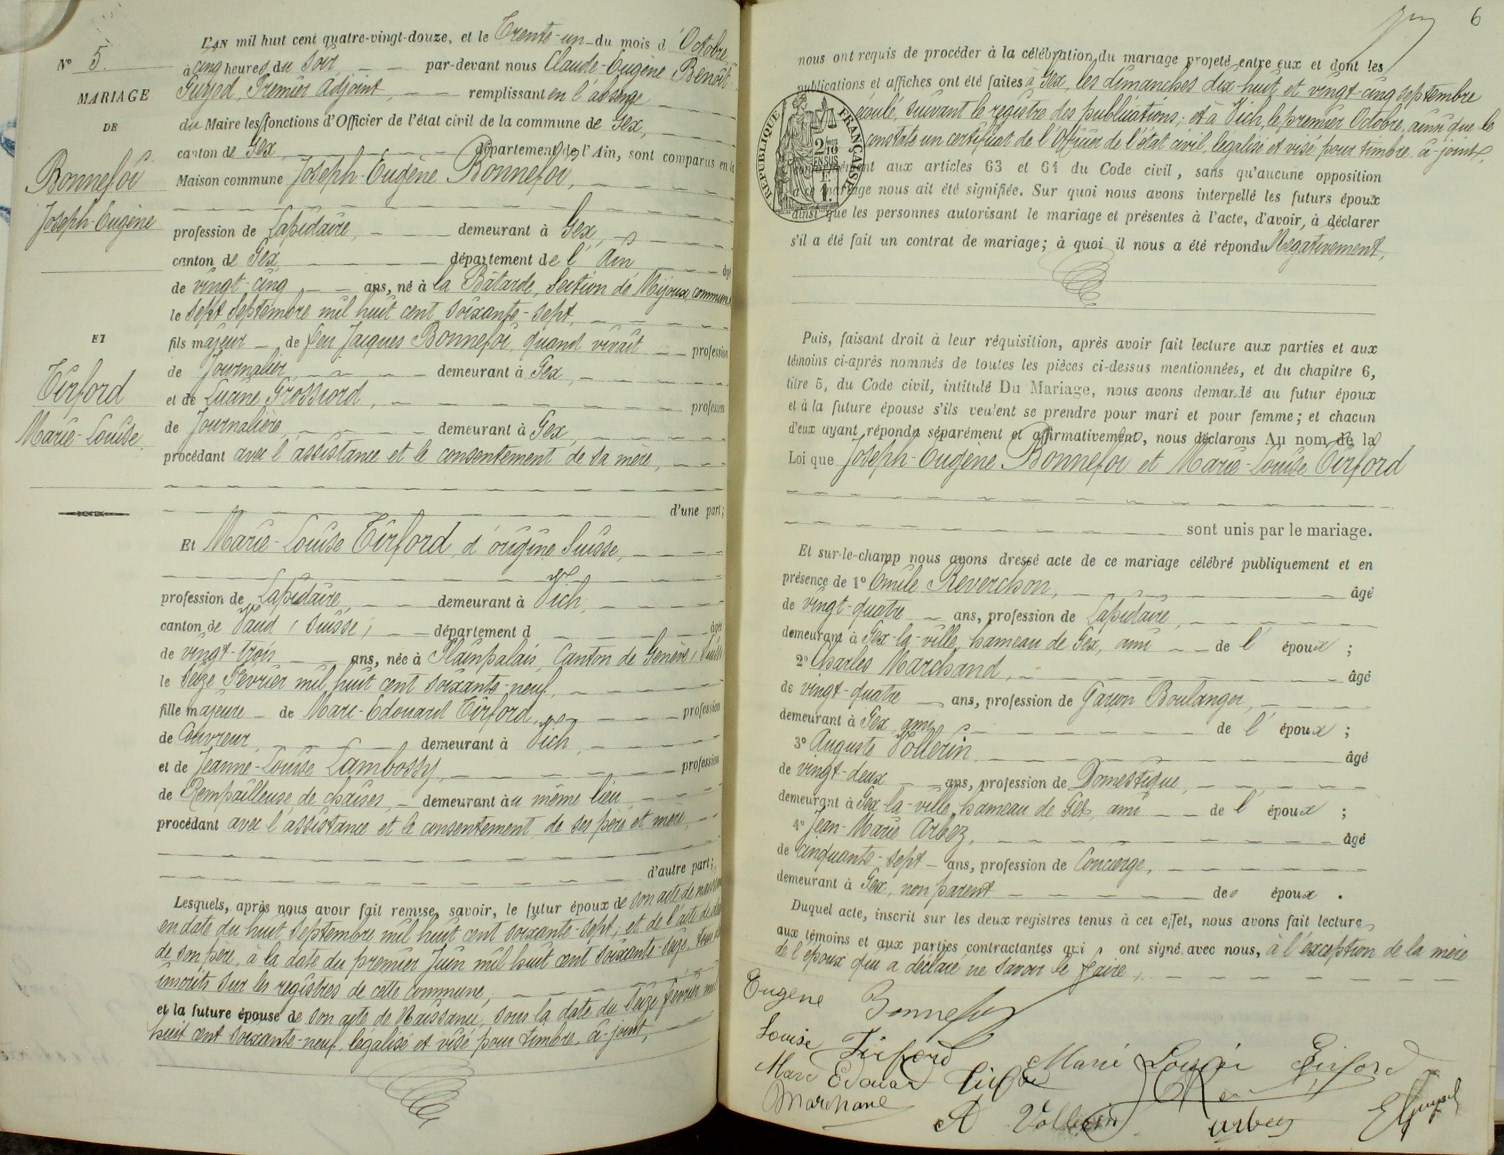 L'AN mil huit cent quatre-vingt-douze, et le Trente-un du mois d'Octobre
N° 5. à cinq heures du soir par-devant nous Claude-Eugène Benoît
MARIAGE
Premier Adjoint, remplissant en l'absence
DE
du Maire les fonctions d'Officier de l'état civil de la commune de Gex,
canton de Gex département de l'Ain, sont comparus en la
Bonnefoi
Maison commune Joseph-Eugène Bonnefoi,
Joseph-Eugène
profession de Lapidaire, demeurant à Gex,
canton de Gex département de l'Ain âgé
de vingt-cinq ans, né à la Bâtarde, Section de Mijoux, commune
le sept Septembre mil huit cent soixante-sept,
ET
fils majeur de feu Jacques Bonnefoi, quand vivait profession
de Journalier, demeurant à Gex,
Tirford
et de Lucine Grossiord, profession
Marie-Louise
de Journalière demeurant à Gex,
procédant avec l'assistance et le consentement de sa mère,
d'une part;
Et Marie-Louise Tirford, d'origine Suisse,
profession de Lapidaire, demeurant à Vich,
canton de Vaud (Suisse) département d âgée
de vingt-trois ans, née à Plainpalais, Canton de Genève (Suisse
le seize Février mil huit cent soixante-neuf,
fille majeure de Marc-Edouard Tirford, profession
de Couvreur, demeurant à Vich,
et de Jeanne-Louise Lambossy, profession
de Rempailleuse de chaises, demeurant au même lieu
procédant avec l'assistance et le consentement de ses père et mère
d'autre part;
Lesquels, après nous avoir fait remise, savoir, le futur époux de son acte de naissance
en date du huit Septembre mil huit cent soixante-sept, et de l'acte de décès
de son père, à la date du premier Juin mil huit cent soixante-seize, tous
inscrits sur les registres de cette commune,
et la future épouse de son acte de Naissance, sous la date du seize février mil
huit cent soixante-neuf, légalisé et visé pour timbre, ci-joint,
6
nous ont requis de procéder à la célébration du mariage projeté entre eux et dont les
publications et affiches ont été faites à Gex, les dimanches dix-huit et vingt-cinq septembre
écoulé, suivant le registre des publications; et à Vich, le premier Octobre, ainsi que le
constate un certificat de l'Officier de l'état civil, légalisé et visé pour timbre ci-joint,
RÉPUBLIQUE FRANÇAISE
aux articles 63 et 64 du Code civil, sans qu'aucune opposition
nous ait été signifiée. Sur quoi nous avons interpellé les futurs époux
ainsi que les personnes autorisant le mariage et présentes à l'acte, d'avoir, à déclarer
s'il a été fait un contrat de mariage; à quoi il nous a été répondu Négativement,
Puis, faisant droit à leur réquisition, après avoir fait lecture aux parties et aux
témoins ci-après nommés de toutes les pièces ci-dessus mentionnées, et du chapitre 6,
titre 5, du Code civil, intitulé Du Mariage, nous avons demandé au futur époux
et à la future épouse s'ils veulent se prendre pour mari et pour femme; et chacun
d'eux ayant répondu séparément et affirmativement, nous déclarons Au nom de la
Loi que Joseph-Eugène Bonnefoi et Marie-Louise Tirford
sont unis par le mariage.
Et sur-le-champ nous avons dressé acte de ce mariage célébré publiquement et en
présence de 1° Emile Reverchon, âgé
de vingt-quatre ans, profession de Lapidaire,
demeurant à Gex-la-ville, hameau de Gex, ami de l'époux ;
2° Charles Marchand, âgé
de vingt-quatre ans, profession de Garçon Boulanger,
demeurant à Gex, ami de l'époux ;
3° Auguste Vollerin âgé
de vingt-deux ans, profession de Domestique,
demeurant à Gex-la-ville, hameau de Gex, ami de l'époux ;
4° Jean-Marie Arbez, âgé
de cinquante-sept ans, profession de Concierge,
demeurant à Gex, non parent des époux.
Duquel acte, inscrit sur les deux registres tenus à cet effet, nous avons fait lecture
aux témoins et aux parties contractantes qui ont signé avec nous, à l'exception de la mère
de l'époux qui a déclaré ne savoir le faire,
Eugène Bonnefoy
Louise Tirford Marie Louise Tirford
Marc Edouard Tirford
Marchand A Vollerin Arbez